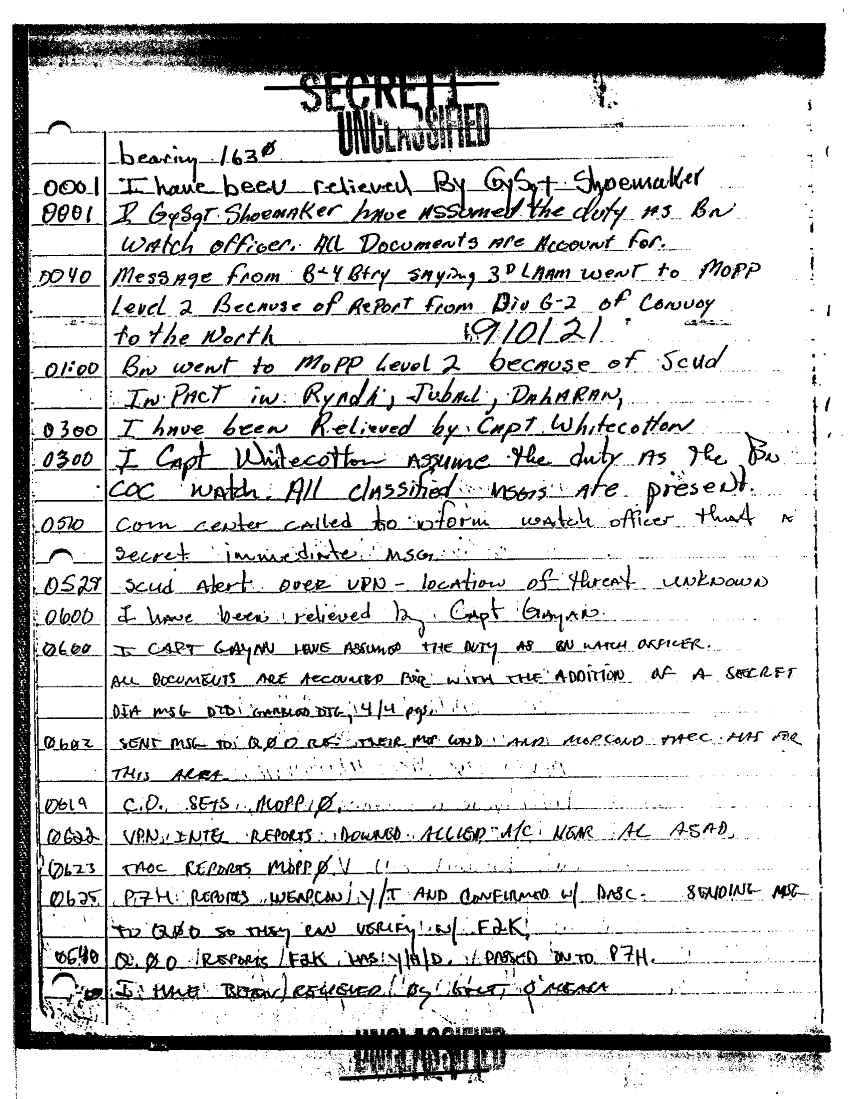 SECRET
UNCLASSIFIED
bearing 163Ø
0001 I have been relieved By GySgt Shoemaker
0001 I GySgt Shoemaker have Assumed the duty as Bn
Watch officer. All Documents Are Account for.
0040 Message from B-4 Btry saying 3D LAAM went to MOPP
Level 2 Because of Report from Div G-2 of Convoy
to the North 910121
01:00 Bn went to MOPP Level 2 because of Scud
InPact in Ryadh, Jubail, DAHARAN,
0300 I have been Relieved by Capt Whitecotton
0300 I Capt Whitecotton Assume the duty As the Bn
COC watch. All classified msgs are present.
0510 Com center called to inform watch officer that a
secret immediate msg
0529 Scud Alert over VPN - location of threat unknown
0600 I have been relieved by Capt Gayan.
0600 I CAPT GAYAN HAVE ASSUMED THE DUTY AS BN WATCH OFFICER.
ALL DOCUMENTS ARE ACCOUNTED FOR WITH THE ADDITION OF A SECRET
DIA MSG DTD: GARBLED DTG, 4/4 pgs.
0602 SENT MSG TO QØO RE: THEIR MOP COND AND MOPCOND TAOC HAS FOR
THIS AREA
0619 C.O. SETS MOPP Ø.
0622 VPN INTEL REPORTS DOWNED ALLIED A/C NEAR AL ASAD.
0623 TAOC REPORTS MOPP Ø
0625 P7H REPORTS WEAPCON Y/T AND CONFIRMED W/ DASC. SENDING MSG
TO QØO SO THEY CAN VERIFY W/ F2K.
0640 QØO REPORTS F2K HAS Y/ /D. PASSED ONTO P7H.
I HAVE BEEN RELIEVED BY O'MEARA
UNCLASSIFIED